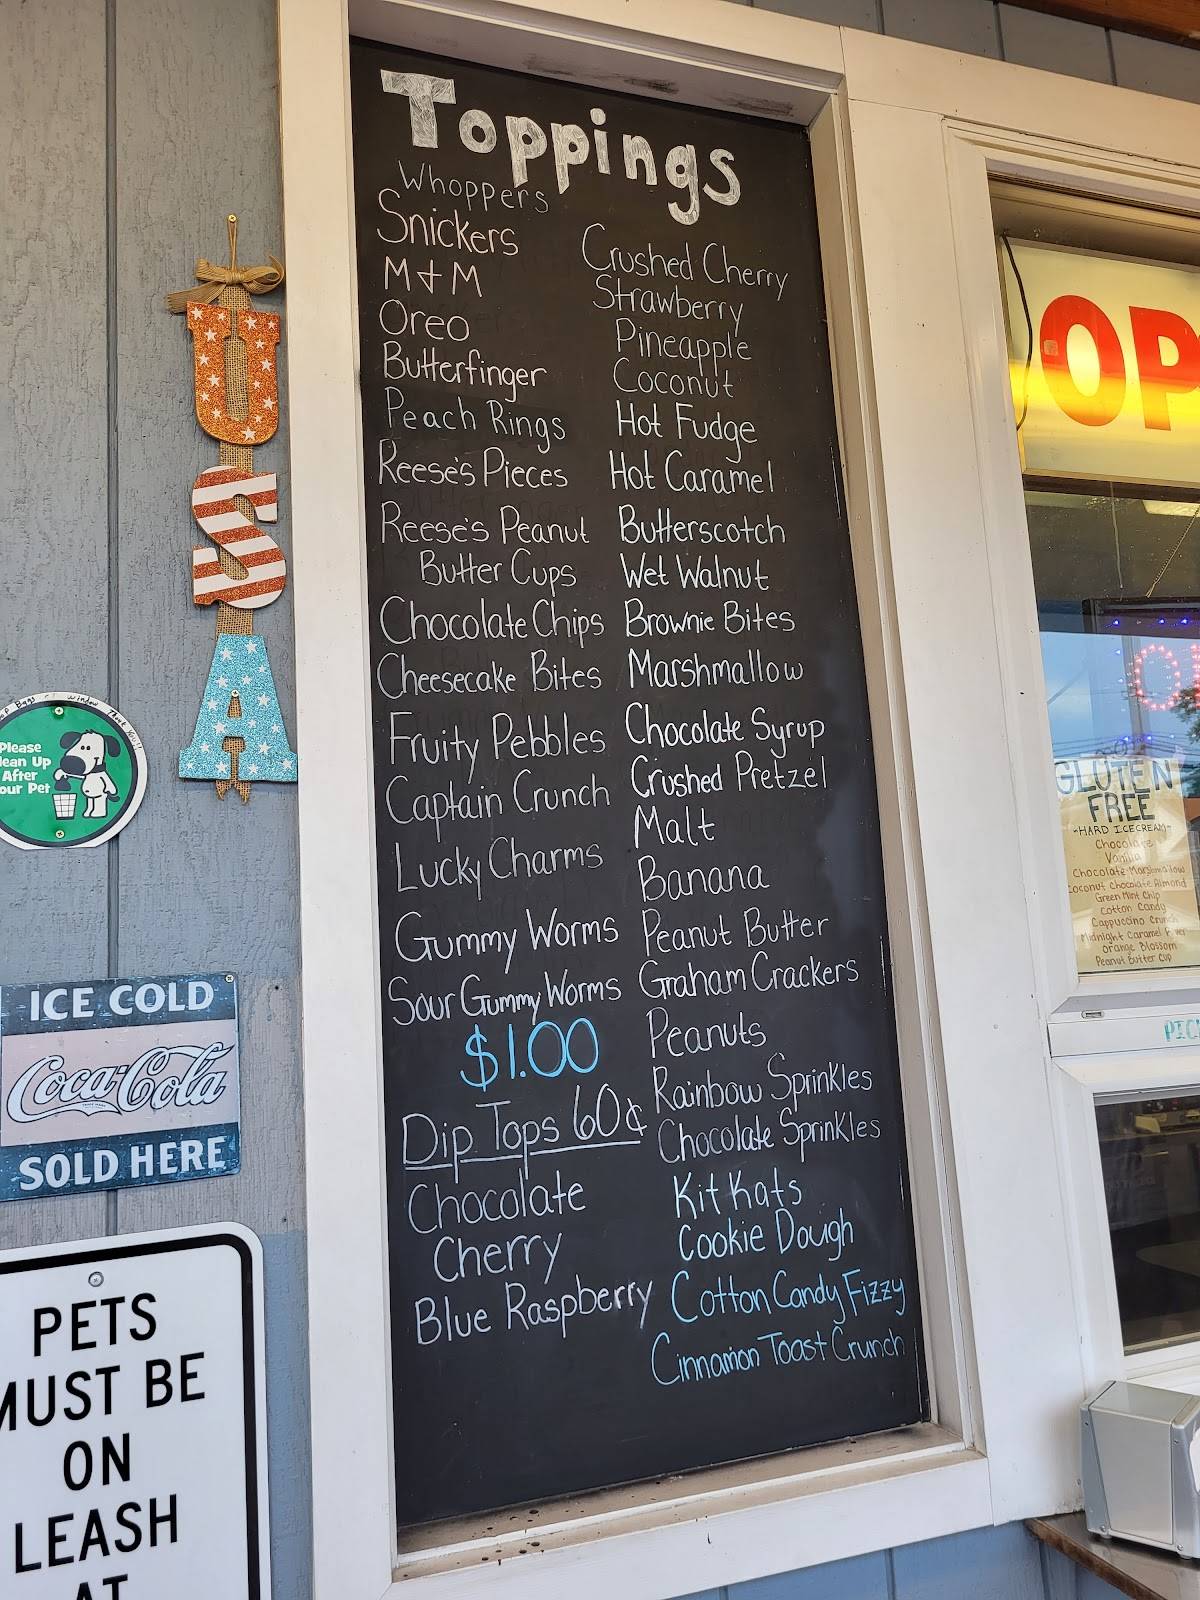 Toppings
Whoppers
Snickers
M & M
Oreo
Butterfinger
Peach Rings
Reese's Pieces
Reese's Peanut
Butter Cups
Chocolate Chips
Cheesecake Bites
Fruity Pebbles
Captain Crunch
Lucky Charms
Gummy Worms
Sour Gummy Worms
$1.00
Dip Tops 60¢
Chocolate
Cherry
Blue Raspberry
Crushed Cherry
Strawberry
Pineapple
Coconut
Hot Fudge
Hot Caramel
Butterscotch
Wet Walnut
Brownie Bites
Marshmallow
Chocolate Syrup
Crushed Pretzel
Malt
Banana
Peanut Butter
Graham Crackers
Peanuts
Rainbow Sprinkles
Chocolate Sprinkles
Kit Kats
Cookie Dough
Cotton Candy Fizzy
Cinnamon Toast Crunch
USA
window Thank You!!
Please
lean Up
After
our Pet
ICE COLD
Coca-Cola
SOLD HERE
PETS
MUST BE
ON
LEASH
AT
OP
GLUTEN
FREE
-HARD ICECREAM-
Chocolate
Vanilla
Chocolate Marshmallow
Coconut Chocolate Almond
Green Mint Chip
Cotton Candy
Cappuccino Crunch
Midnight Caramel River
Orange Blossom
Peanut Butter Cup
PIC